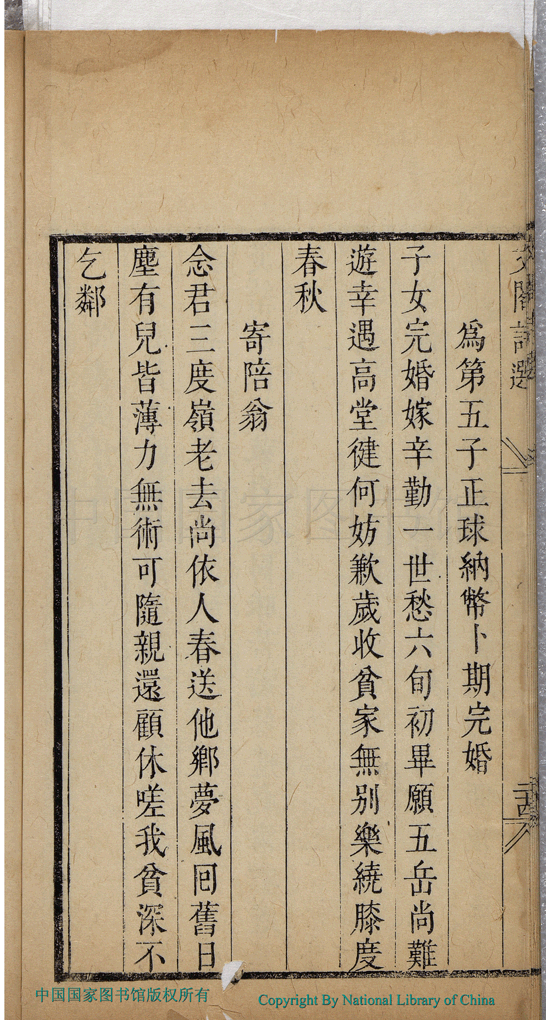 文閣詩選
爲第五子正球納幣卜期完婚
子女完婚嫁辛勤一世愁六旬初畢願五岳尚難
遊幸遇高堂徤何妨歉歲收貧家無別樂繞膝度
春秋
寄陪翁
念君三度嶺老去尚依人春送他鄉夢風囘舊日
塵有兒皆薄力無術可隨親還顧休嗟我貧深不
乞鄰
中国国家图书馆版权所有
Copyright By National Library of China